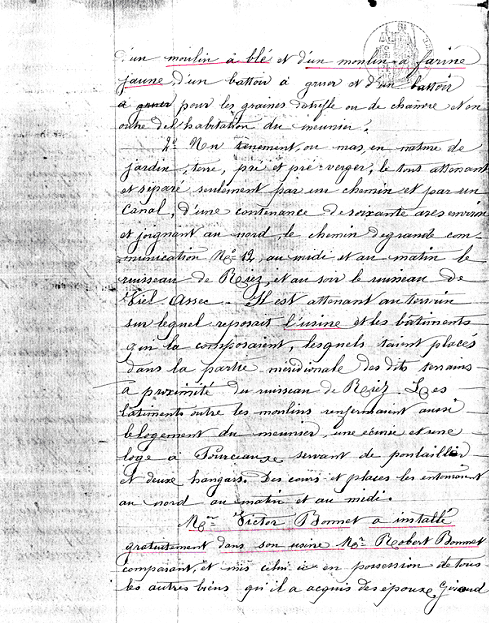 d'un moulin à blé et d'un moulin à farine
jaune, d'un battoir à gruer et d'un battoir
à gruer pour les graines de trèfle ou de chanvre et en
outre de l'habitation du meunier.
2º Un tènement, ou mas, en nature de
jardin, terre, pré et pré-verger, le tout attenant
et séparé seulement par un chemin et par un
Canal, d'une contenance de soixante ares environ
et joignant au nord, le chemin de grande com-
munication Nº 12, au midi et au matin le
ruisseau de et au soir le ruisseau de
Viel Assec. Il est attenant au terrain
sur lequel reposait l'usine et les bâtiments
qui la composaient, lesquels étaient placés
dans la partie méridionale des dits terrains
à proximité du ruisseau de Les
bâtiments outre les moulins renfermaient aussi
le logement du meunier, une écurie et une
loge à Pourceaux servant de poulailler
et deux hangars. Des cours et places les entouraient
au nord au matin et au midi.
Mr Victor Bonnet a installé
gratuitement dans son usine Mr Robert Bonnet
comparant, et mis celui ci en possession de tous
les autres biens qu'il a acquis des époux Giraud